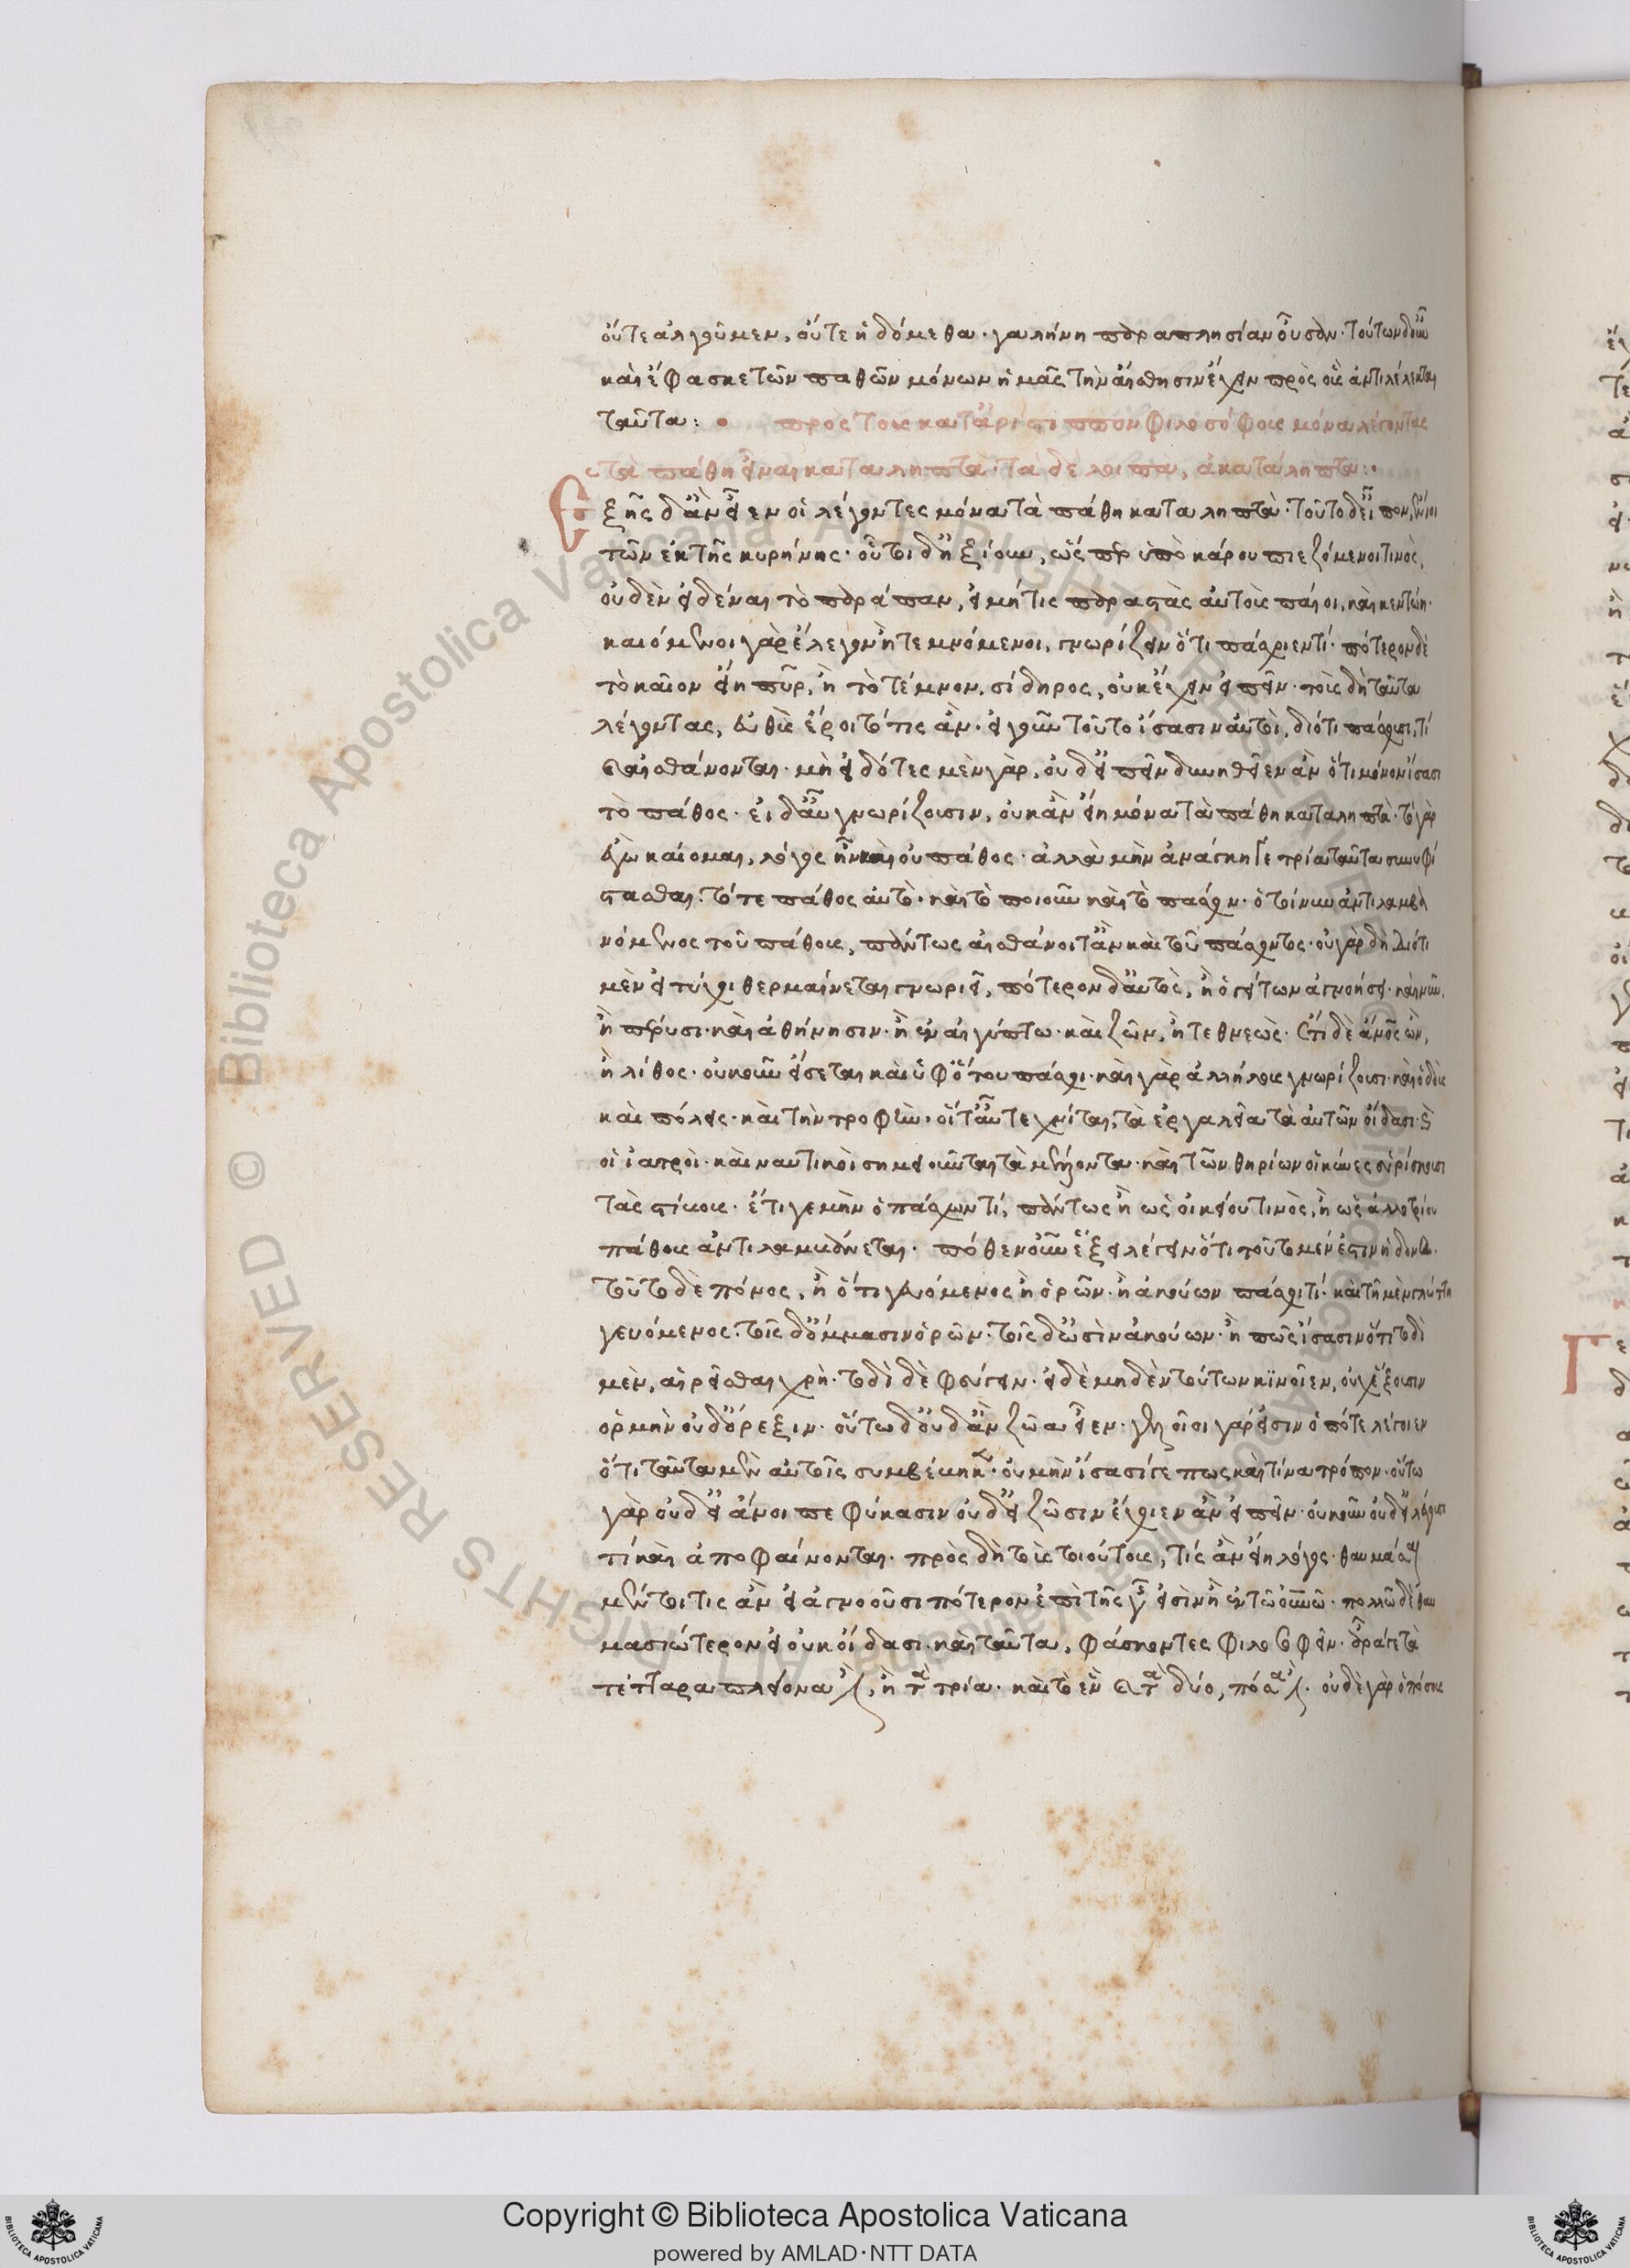 οὔτε ἀλγοῦμεν, οὔτε ἡδόμεθα· γαλήνῃ παραπλησίαν οὖσαν· τούτων δὴ οὖν
καὶ ἔφασκε τῶν παθῶν μόνων ἡμᾶς τὴν αἴσθησιν ἔχειν πρὸς οὓς ἀντιλέλεκται
ταῦτα: • πρὸς τοὺς κατ' ἀρίστιππον φιλοσόφους μόνα λέγοντας
τὰ πάθη εἶναι καταληπτά· τὰ δὲ λοιπὰ, ἀκατάληπτα:•
Ἑξῆς δ' ἂν εἶεν οἱ λέγοντες μόνα τὰ πάθη καταληπτά· τοῦτο δ' εἶπον ἔνιοι
τῶν ἐκ τῆς κυρήνης· οὗτοι δ' ἠξίουν, ὥσπερ ὑπὸ κάρου πιεζόμενοί τινος,
οὐδὲν εἰδέναι τὸ παράπαν, εἰ μή τις παραστὰς αὐτοὺς παίοι, καὶ κεντῴη·
καιόμενοι γὰρ ἔλεγον ἢ τεμνόμενοι, γνωρίζειν ὅτι πάσχοιέν τι· πότερον δὲ
τὸ καῖον εἴη πῦρ, ἢ τὸ τέμνον, σίδηρος, οὐκ ἔχειν εἰπεῖν· τοὺς δὴ ταῦτα
λέγοντας, εὐθὺς ἔροιτό τις ἄν· εἰ γοῦν τοῦτο ἴσασιν αὐτοί, διότι πάσχουσι, τί
αἰσθάνονται· μὴ εἰδότες μὲν γὰρ, οὐδ' εἰπεῖν δυνηθεῖεν ἂν ὅτι μόνον ἴσασι
τὸ πάθος· εἰ δ' αὖ γνωρίζουσιν, οὐκ ἂν εἴη μόνα τὰ πάθη καταληπτά· τὸ γὰρ
ἐγὼ καίομαι, λόγος ἦν καὶ οὐ πάθος· ἀλλὰ μὴν ἀνάγκη γε τρία ταῦτα συνυφί
στασθαι· τό τε πάθος αὐτό· καὶ τὸ ποιοῦν καὶ τὸ πάσχον· ὁ τοίνυν ἀντιλαμβα
νόμενος τοῦ πάθους, πάντως αἰσθάνοιτ' ἂν καὶ τοῦ πάσχοντος· οὐ γὰρ δὴ διότι
μὲν εἰ τύχοι θερμαίνεται γνωριεῖ, πότερον δ' αὐτὸς, ἢ ὁ γείτων ἀγνοήσει· καὶ νῦν,
ἢ πέρυσι· καὶ ἀθήνησιν· ἢ ἐν αἰγύπτῳ· καὶ ζῶν, ἢ τεθνεώς· ἔτι δὲ ἄνθρωπος ὢν,
ἢ λίθος· οὐκοῦν εἴσεται καὶ ὑφ' ὅτου πάσχει· καὶ γὰρ ἀλλήλους γνωρίζουσι· καὶ ὁδοὺς
καὶ πόλεις· καὶ τὴν τροφήν· οἵ τ' αὖ τεχνῖται, τὰ ἐργαλεῖα τὰ αὑτῶν οἴδασι· καὶ
οἱ ἰατροί· καὶ ναυτικοὶ σημειοῦνται τὰ μέλλοντα· καὶ τῶν θηρίων οἱ κύνες εὑρίσκουσι
τὰς στίβους· ἔτι γε μὴν ὁ πάσχων τί, πάντως ἢ ὡς οἰκείου τινὸς, ἢ ὡς ἀλλοτρίου
πάθους ἀντιλαμβάνεται· πόθεν οὖν ἕξει λέγειν ὅτι τοῦτο μέν ἐστιν ἡδονή·
τοῦτο δὲ πόνος, ἢ ὅτι γευόμενος ἢ ὁρῶν· ἢ ἀκούων πάσχοι τί· καὶ τῇ μὲν γλώττῃ
γευόμενος· τοῖς δ' ὄμμασιν ὁρῶν· τοῖς δ' ὠσὶν ἀκούων· ἢ πῶς ἴσασιν ὅτι τοδὶ
μὲν, αἱρεῖσθαι χρή· τοδὶ δὲ φεύγειν· εἰ δὲ μηδὲν τούτων κινοῖεν, οὐχ ἕξουσιν
ὁρμὴν οὐδ' ὄρεξιν· οὕτω δ' οὐδ' ἂν ζῷα εἶεν· γελοῖοι γάρ εἰσιν ὁπότε λέγοιεν
ὅτι ταῦτα μὲν αὐτοῖς συμβέβηκεν· οὐ μὴν ἴσασί γε πως καὶ τίνα τρόπον· οὕτω
γὰρ οὐδ' εἰ ἄνθρωποι πεφύκασιν οὐδ' εἰ ζῶσιν ἔχοιεν ἂν εἰπεῖν· οὐκοῦν οὐδ' εἰ λέγουσι
τί καὶ ἀποφαίνονται· πρὸς δὴ τοὺς τοιούτους, τίς ἂν εἴη λόγος· θαυμάσαι
μέντοι τις ἂν εἰ ἀγνοοῦσι πότερον ἐπὶ τῆς γῆς εἰσὶν ἢ ἐν τῷ οὐρανῷ· πολλῷ δὲ θαυ
μασιώτερον εἰ οὐκ οἴδασι καὶ ταῦτα, φάσκοντες φιλοσοφεῖν· ἆρά γε τὰ
τέτταρα πλείονά ἐστι, ἢ τὰ τρία· καὶ τὸ ἓν καὶ τὰ δύο, πόσα ἐστί· οὐδὲ γὰρ ὁπόσους